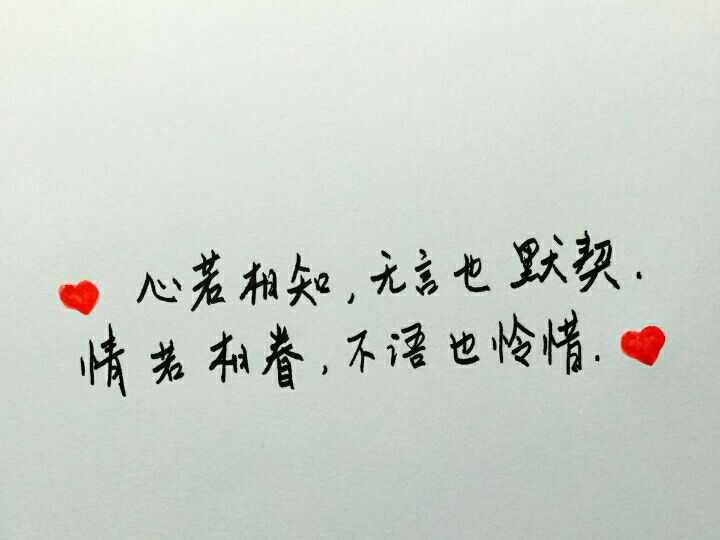 心若相知,无言也默契.
情若相眷,不语也怜惜.